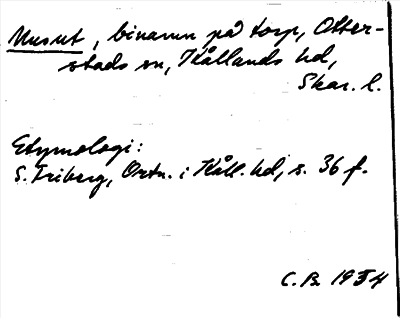 Musut, binamn på torp, Otter-
stads sn, Kållands hd,
Skar. l.
Etymologi:
S. Friberg, Ortn. i Kåll. hd, s. 36 f.
C.B. 1954